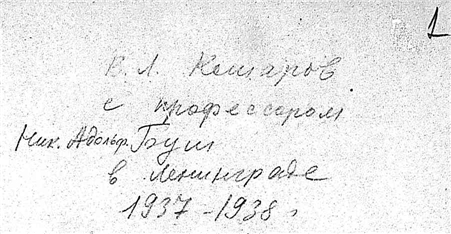 1
В. Л. Комаров
с профессором
Ник. Адольф. Буш
в Ленинграде
1937-1938 г.